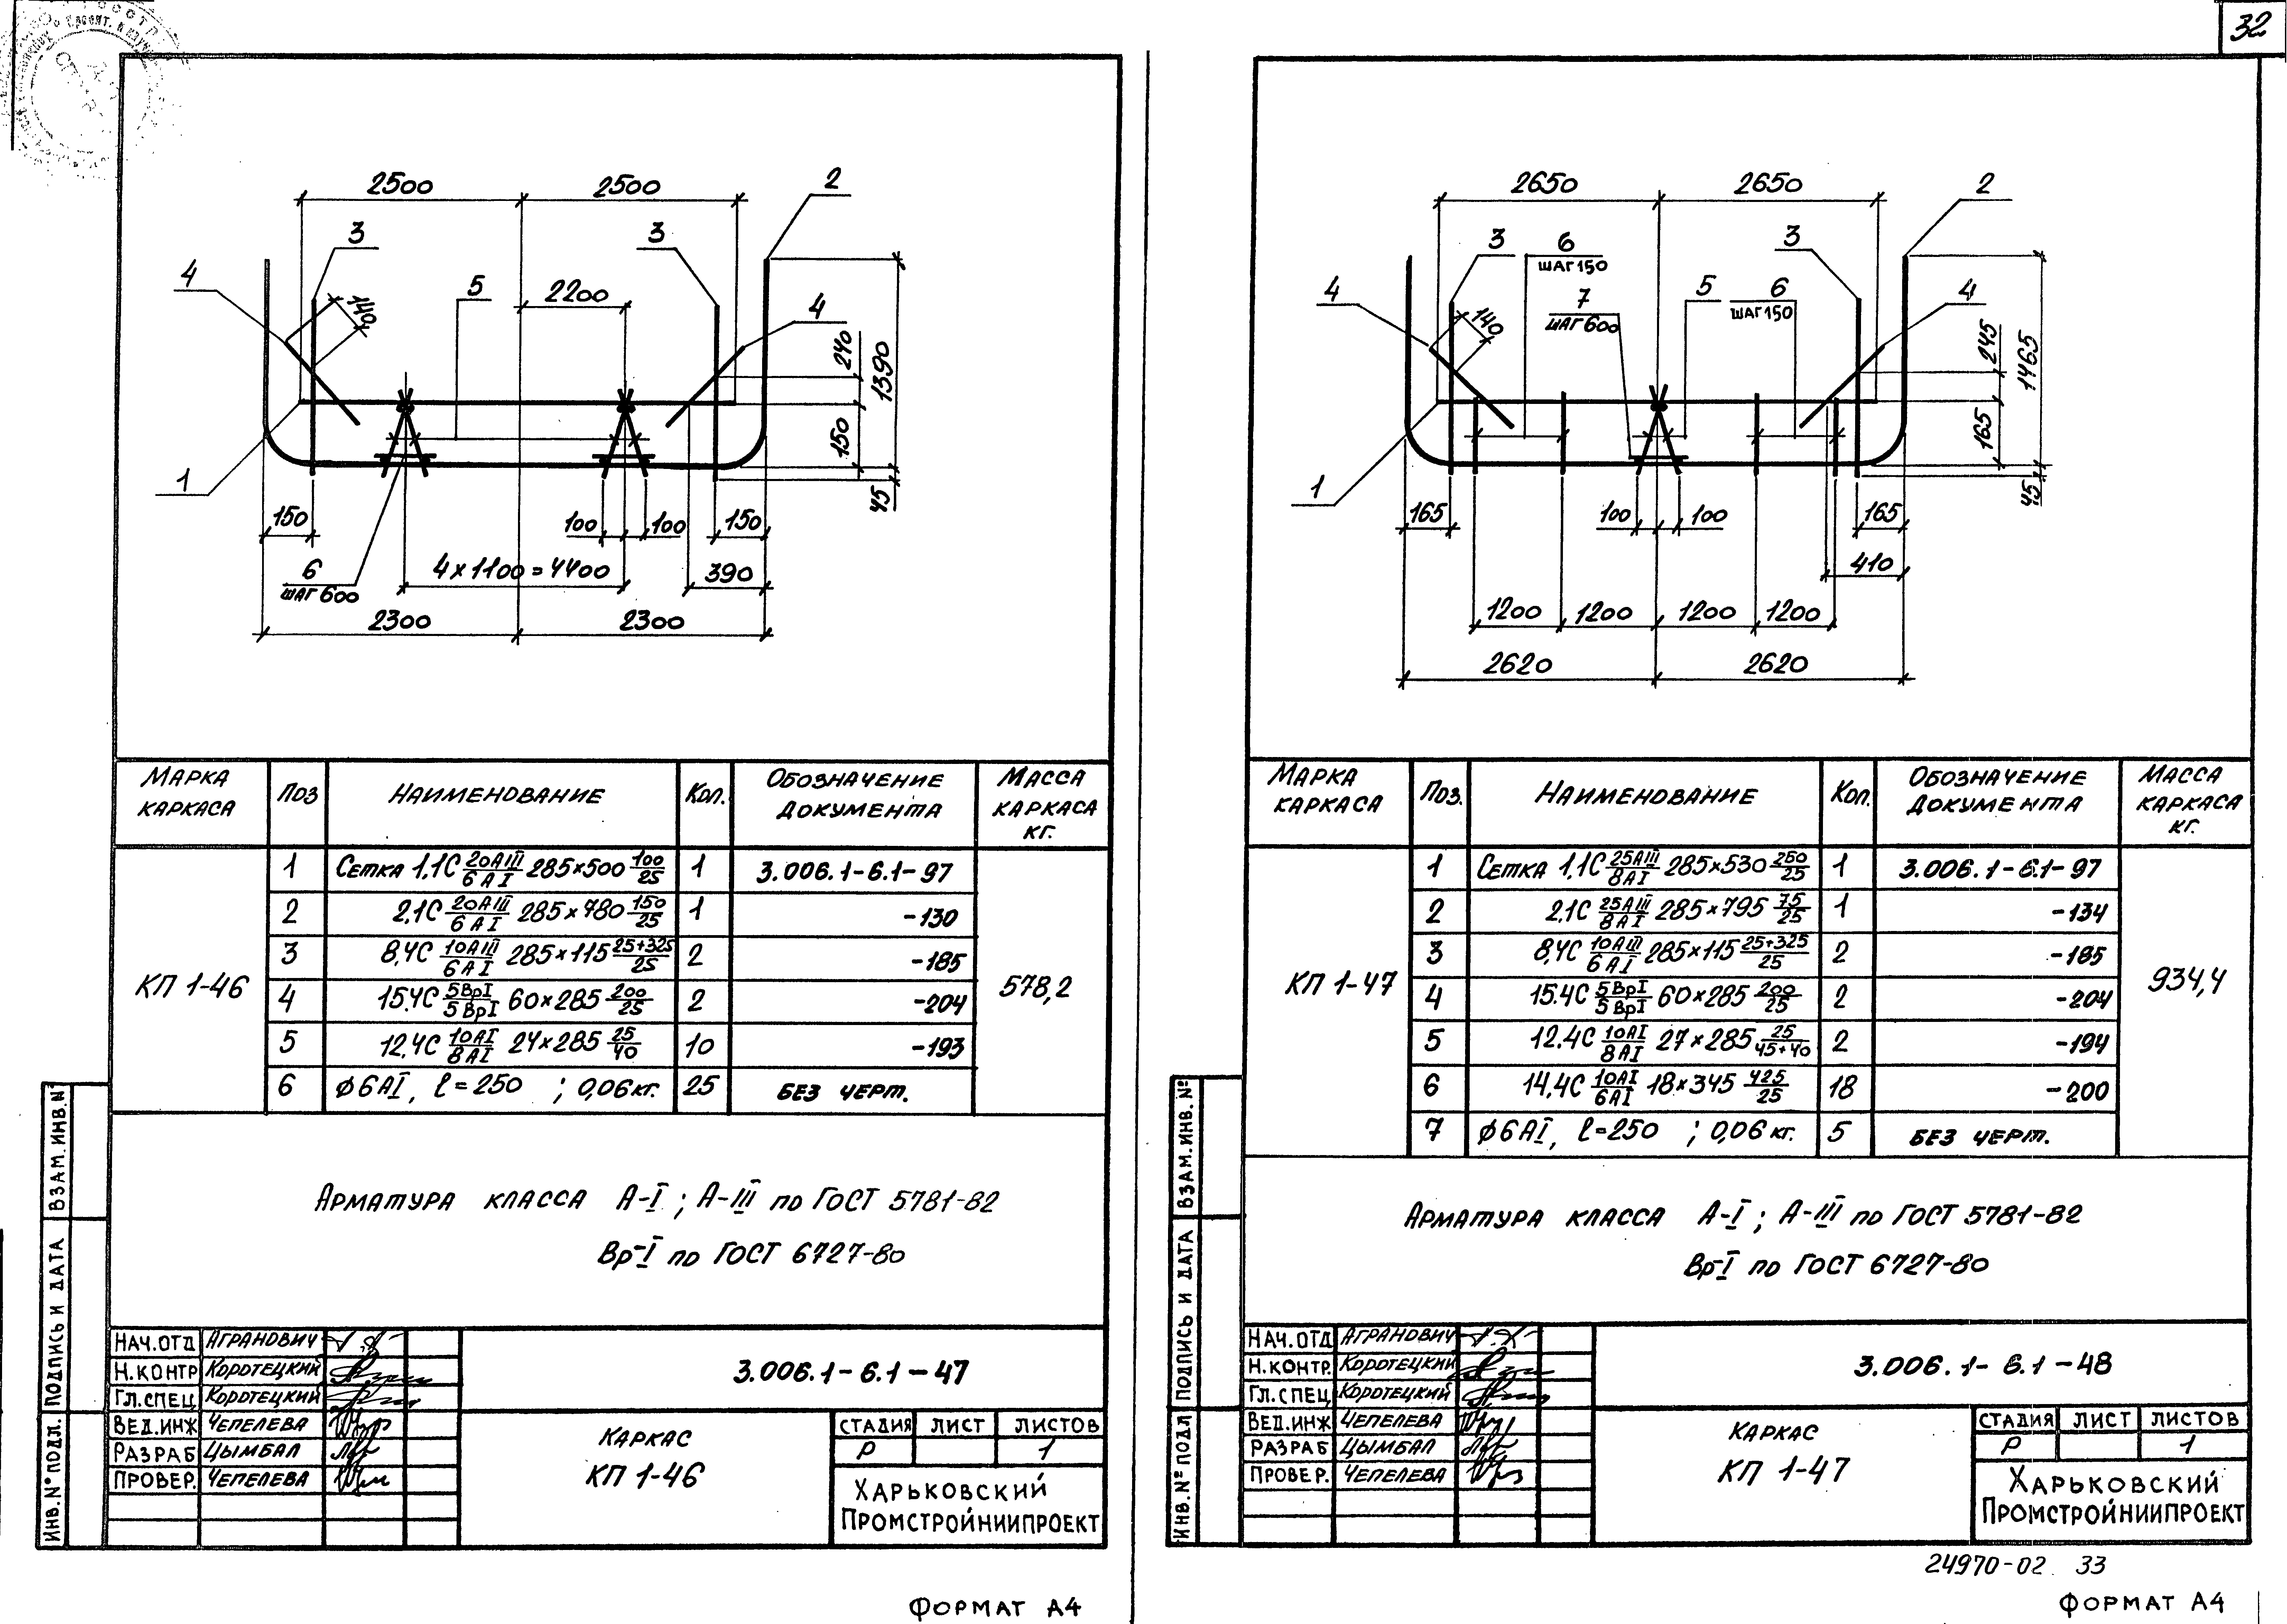 32
2500 2500
2
3 3
4
5
2200
140
4
240
1390
150
45
1
150
100 100
150
6
ШАГ 600
4×1100=4400
390
2300 2300
МАРКА КАРКАСА Поз НАИМЕНОВАНИЕ Кол. ОБОЗНАЧЕНИЕ ДОКУМЕНТА МАССА КАРКАСА КГ.
КП 1-46
578,2
1 Сетка 1.1С 20АIII/6АI 285×500 100/25 1 3.006.1-6.1-97
2 2.1С 20АIII/6АI 285×780 150/25 1 -130
3 8.4С 10АIII/6АI 285×115 25+325/25 2 -185
4 15.4С 5ВрI/5ВрI 60×285 200/25 2 -204
5 12.4С 10АI/8АI 24×285 25/40 10 -193
6 φ6АI, ℓ=250 ; 0,06 кг. 25 БЕЗ ЧЕРТ.
АРМАТУРА КЛАССА А-I; А-III по ГОСТ 5781-82
Вр-I по ГОСТ 6727-80
ВЗАМ.ИНВ.№
ПОДПИСЬ И ДАТА
ИНВ.№ ПОДЛ.
НАЧ.ОТД АГРАНОВИЧ
Н.КОНТР КОРОТЕЦКИЙ
ГЛ.СПЕЦ КОРОТЕЦКИЙ
ВЕД.ИНЖ ЧЕПЕЛЕВА
РАЗРАБ ЦЫМБАЛ
ПРОВЕР. ЧЕПЕЛЕВА
3.006.1-6.1-47
КАРКАС
КП 1-46
СТАДИЯ ЛИСТ ЛИСТОВ
Р 1
ХАРЬКОВСКИЙ
ПРОМСТРОЙНИИПРОЕКТ
ФОРМАТ А4
2650 2650
2
3
6
ШАГ 150
3
4
7
ШАГ 600
5
6
ШАГ 150
4
140
245
1465
165
45
1
165
100 100
165
410
1200 1200 1200 1200
2620 2620
МАРКА КАРКАСА Поз. НАИМЕНОВАНИЕ Кол. ОБОЗНАЧЕНИЕ ДОКУМЕНТА МАССА КАРКАСА КГ.
КП 1-47
934,4
1 Сетка 1.1С 25АIII/8АI 285×530 250/25 1 3.006.1-6.1-97
2 2.1С 25АIII/8АI 285×795 75/25 1 -134
3 8.4С 10АIII/6АI 285×115 25+325/25 2 -185
4 15.4С 5ВрI/5ВрI 60×285 200/25 2 -204
5 12.4С 10АI/8АI 27×285 25/45+40 2 -194
6 14.4С 10АI/6АI 18×345 425/25 18 -200
7 φ6АI, ℓ=250 ; 0,06 кг. 5 БЕЗ ЧЕРТ.
АРМАТУРА КЛАССА А-I; А-III по ГОСТ 5781-82
Вр-I по ГОСТ 6727-80
ВЗАМ.ИНВ.№
ПОДПИСЬ И ДАТА
ИНВ.№ ПОДЛ
НАЧ.ОТД АГРАНОВИЧ
Н.КОНТР. КОРОТЕЦКИЙ
ГЛ.СПЕЦ КОРОТЕЦКИЙ
ВЕД.ИНЖ ЧЕПЕЛЕВА
РАЗРАБ ЦЫМБАЛ
ПРОВЕР. ЧЕПЕЛЕВА
3.006.1-6.1-48
КАРКАС
КП 1-47
СТАДИЯ ЛИСТ ЛИСТОВ
Р 1
ХАРЬКОВСКИЙ
ПРОМСТРОЙНИИПРОЕКТ
24970-02 33
ФОРМАТ А4